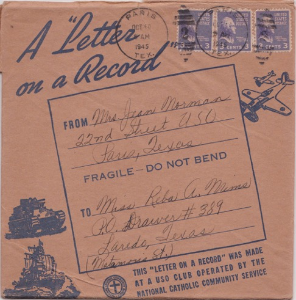 A "Letter
on a Record"
PARIS
1945
TEX.
3 CENTS 3
FROM Mrs Jean Norman
22nd Street USO
Paris, Texas
FRAGILE — DO NOT BEND
TO Miss Reba A. Mims
P.O. Drawer # 389
Laredo, Texas
THIS "LETTER ON A RECORD" WAS MADE
AT A USO CLUB OPERATED BY THE
NATIONAL CATHOLIC COMMUNITY SERVICE